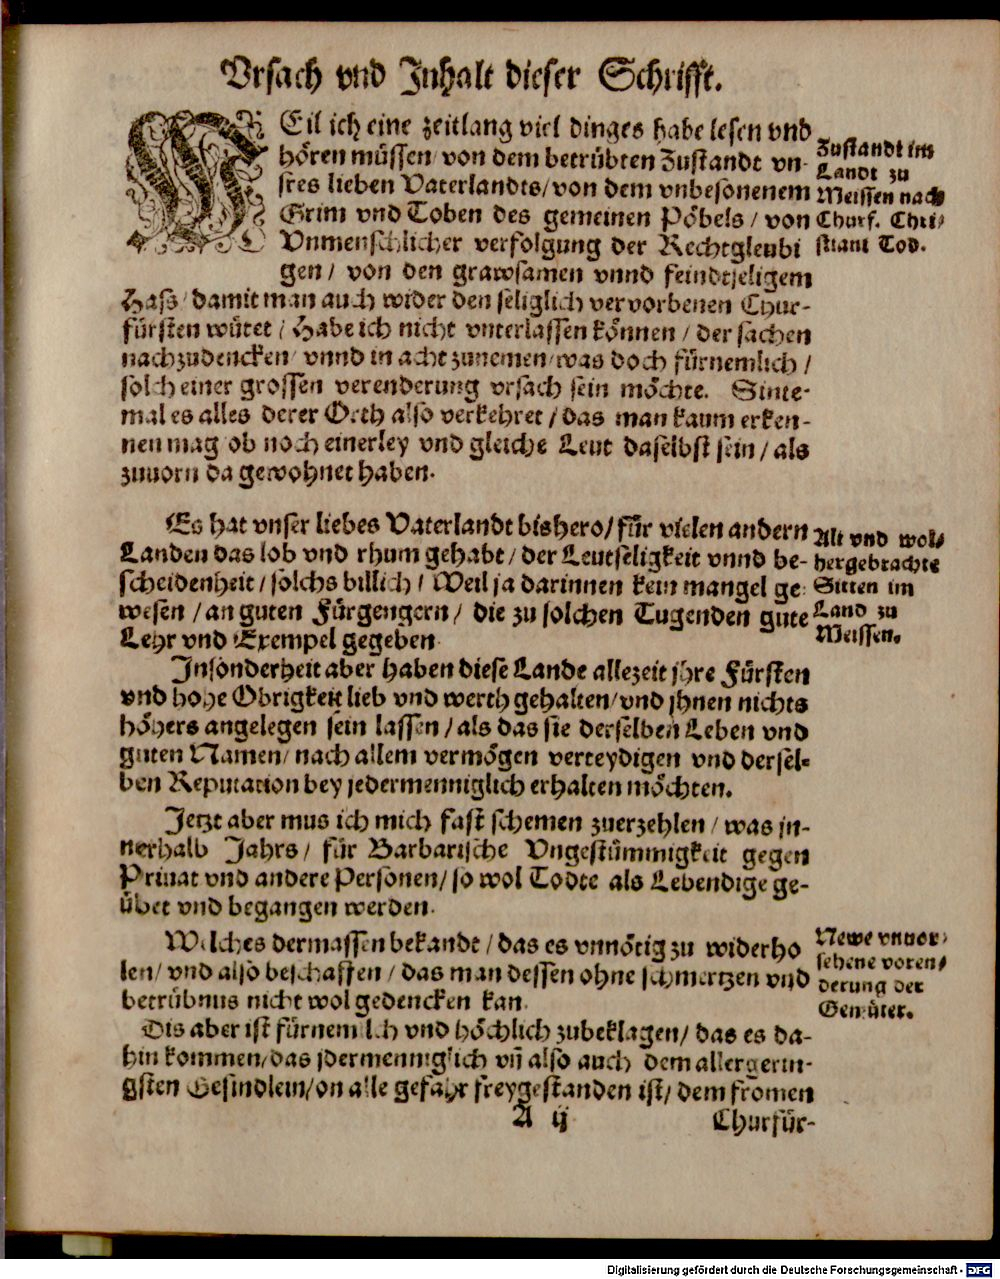 Vrsach vnd Inhalt dieser Schrifft.
WEil ich eine zeitlang viel dinges habe lesen vnd
hören müssen/ von dem betrübten Zustandt vn-
sres lieben Vaterlandts/ von dem vnbesonenem
Grim vnd Toben des gemeinen Pöbels / von
Vnmenschlicher verfolgung der Rechtgleubi
gen / von den grawsamen vnnd feindtseligem
Haß/ damit man auch wider den seliglich vervorbenen Chur-
fürsten wütet / Habe ich nicht vnterlassen können / der sachen
nachzudencken/ vnnd in acht zunemen/ was doch fürnemlich /
solch einer grossen verenderung vrsach sein möchte. Sinte-
mal es alles derer Orth also verkehret / das man kaum erken-
nen mag/ ob noch einerley vnd gleiche Leut daselbst sein / als
zuuorn da gewohnet haben.
Zustandt im
Landt zu
Meissen nach
Churf. Chri-
stiani Tod.
Es hat vnser liebes Vaterlandt bishero/ für vielen andern
Landen das lob vnd rhum gehabt / der Leutseligkeit vnnd be-
scheidenheit / solchs billich / Weil ja darinnen kein mangel ge-
wesen / an guten Fürgengern / die zu solchen Tugenden gute
Lehr vnd Exempel gegeben.
Alt vnd wol-
hergebrachte
Sitten im
Land zu
Meissen.
Insonderheit aber haben diese Lande allezeit jhre Fürsten
vnd hohe Obrigkeit lieb vnd werth gehalten/ vnd jhnen nichts
höhers angelegen sein lassen / als das sie derselben Leben vnd
guten Namen/ nach allem vermögen verteydigen vnd dersel-
ben Reputation bey jedermenniglich erhalten möchten.
Jetzt aber mus ich mich fast schemen zuerzehlen / was in-
nerhalb Jahrs / für Barbarische Vngestümmigkeit gegen
Priuat vnd andere Personen/ so wol Todte als Lebendige ge-
übet vnd begangen werden.
Welches dermassen bekandt / das es vnnötig zu widerho
len/ vnd also beschaffen / das man dessen ohne schmertzen vnd
betrübnus nicht wol gedencken kan.
Newe vnuor-
sehene voren-
derung der
Gemüter.
Dis aber ist fürnemlich vnd höchlich zubeklagen/ das es da-
hin kommen/ das jdermenniglich vñ also auch dem allergerin-
gsten Gesindlein/ on alle gefahr freygestanden ist/ dem fromen
A ij
Churfür-
Digitalisierung gefördert durch die Deutsche Forschungsgemeinschaft - DFG